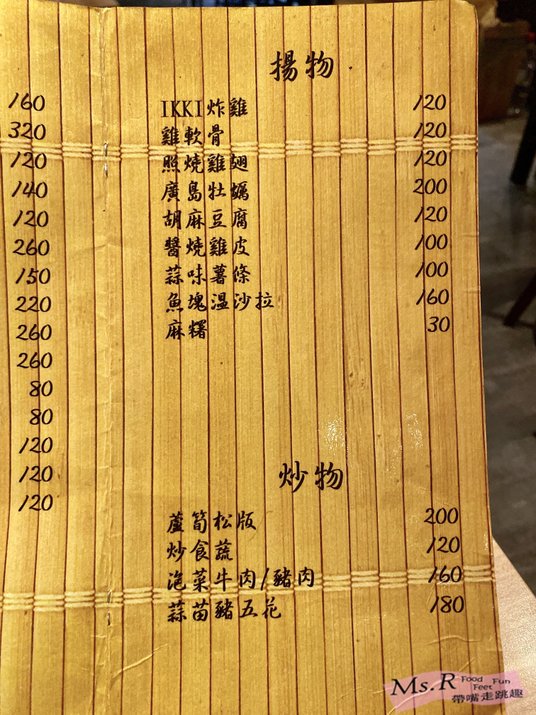 160
320
120
140
120
260
150
220
260
260
80
80
120
120
120
揚物
IKKI炸雞 120
雞軟骨 120
照燒雞翅 120
廣島牡蠣 200
胡麻豆腐 120
醬燒雞皮 100
蒜味薯條 100
魚塊溫沙拉 160
麻糬 30
炒物
蘆筍松版 200
炒食蔬 120
泡菜牛肉/豬肉 160
蒜苗豬五花 180
Ms.R Food Fun Feet
帶嘴走跳趣